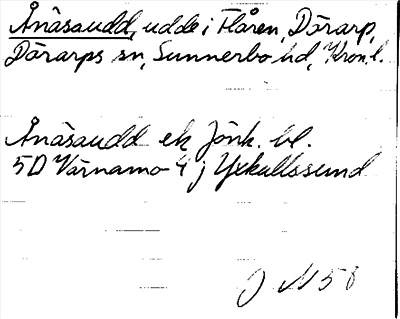 Ånäsaudd, udde i Flåren, Dörarp,
Dörarps sn, Sunnerbo hd, Kron.l.
Ånäsaudd ek Jönk. bl.
5D Värnamo 4 j Yxkullssund
J M 58